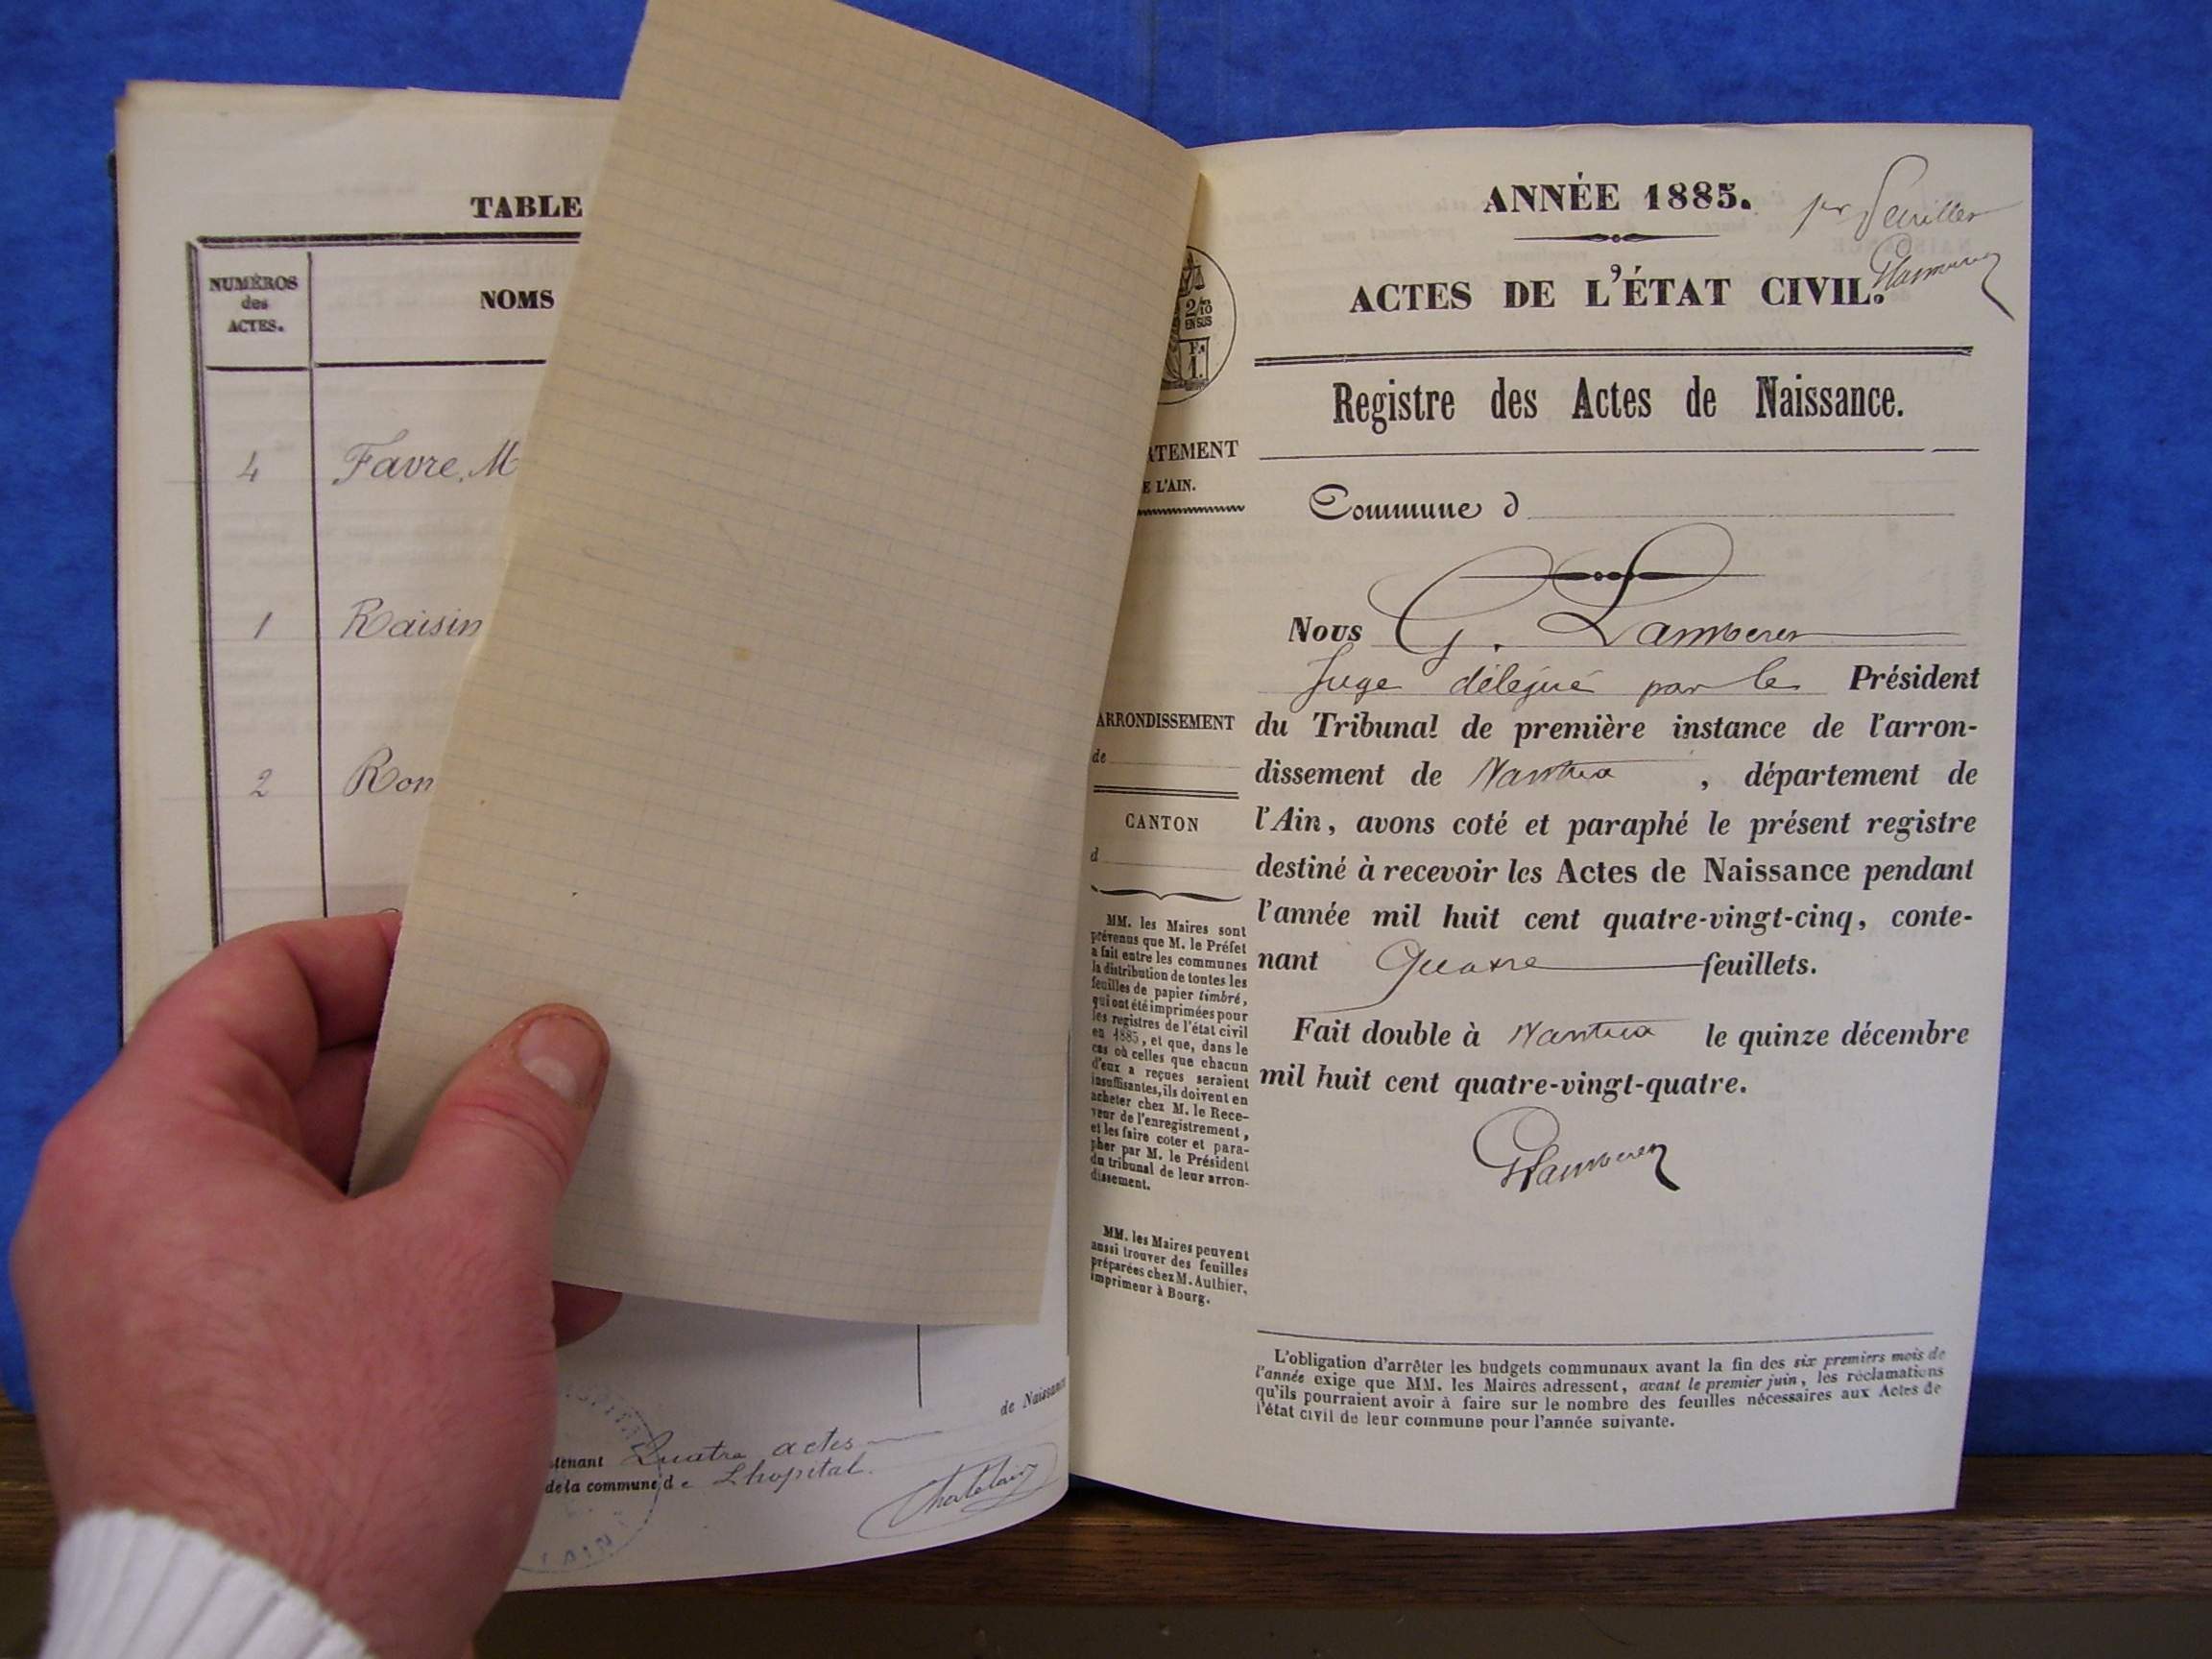 TABLE
NUMÉROS
des
ACTES.
NOMS
4 Favre, M
1 Raisin
2 Ron
de Naissan
tenant Quatre actes
de la commune de Lhopital.
Chatelain
ANNÉE 1885.
ACTES DE L'ÉTAT CIVIL.
Registre des Actes de Naissance.
2/10
EN SUS
F.
1.
TEMENT
E L'AIN.
Commune d
Nous G.
Juge délégué par le Président
ARRONDISSEMENT
de
CANTON
d
du Tribunal de première instance de l'arron-
dissement de Nantua , département de
l'Ain, avons coté et paraphé le présent registre
destiné à recevoir les Actes de Naissance pendant
l'année mil huit cent quatre-vingt-cinq, conte-
nant Quatre feuillets.
Fait double à Nantua le quinze décembre
mil huit cent quatre-vingt-quatre.
MM. les Maires sont
prévenus que M. le Préfet
a fait entre les communes
la distribution de toutes les
feuilles de papier timbré,
qui ont été imprimées pour
les registres de l'état civil
en 1885, et que, dans le
cas où celles que chacun
d'eux a reçues seraient
insuffisantes, ils doivent en
acheter chez M. le Rece-
veur de l'enregistrement,
et les faire coter et para-
pher par M. le Président
du tribunal de leur arron-
dissement.
MM. les Maires peuvent
aussi trouver des feuilles
préparées chez M. Authier,
imprimeur à Bourg.
L'obligation d'arrêter les budgets communaux avant la fin des six premiers mois de
l'année exige que MM. les Maires adressent, avant le premier juin, les réclamations
qu'ils pourraient avoir à faire sur le nombre des feuilles nécessaires aux Actes de
l'état civil de leur commune pour l'année suivante.